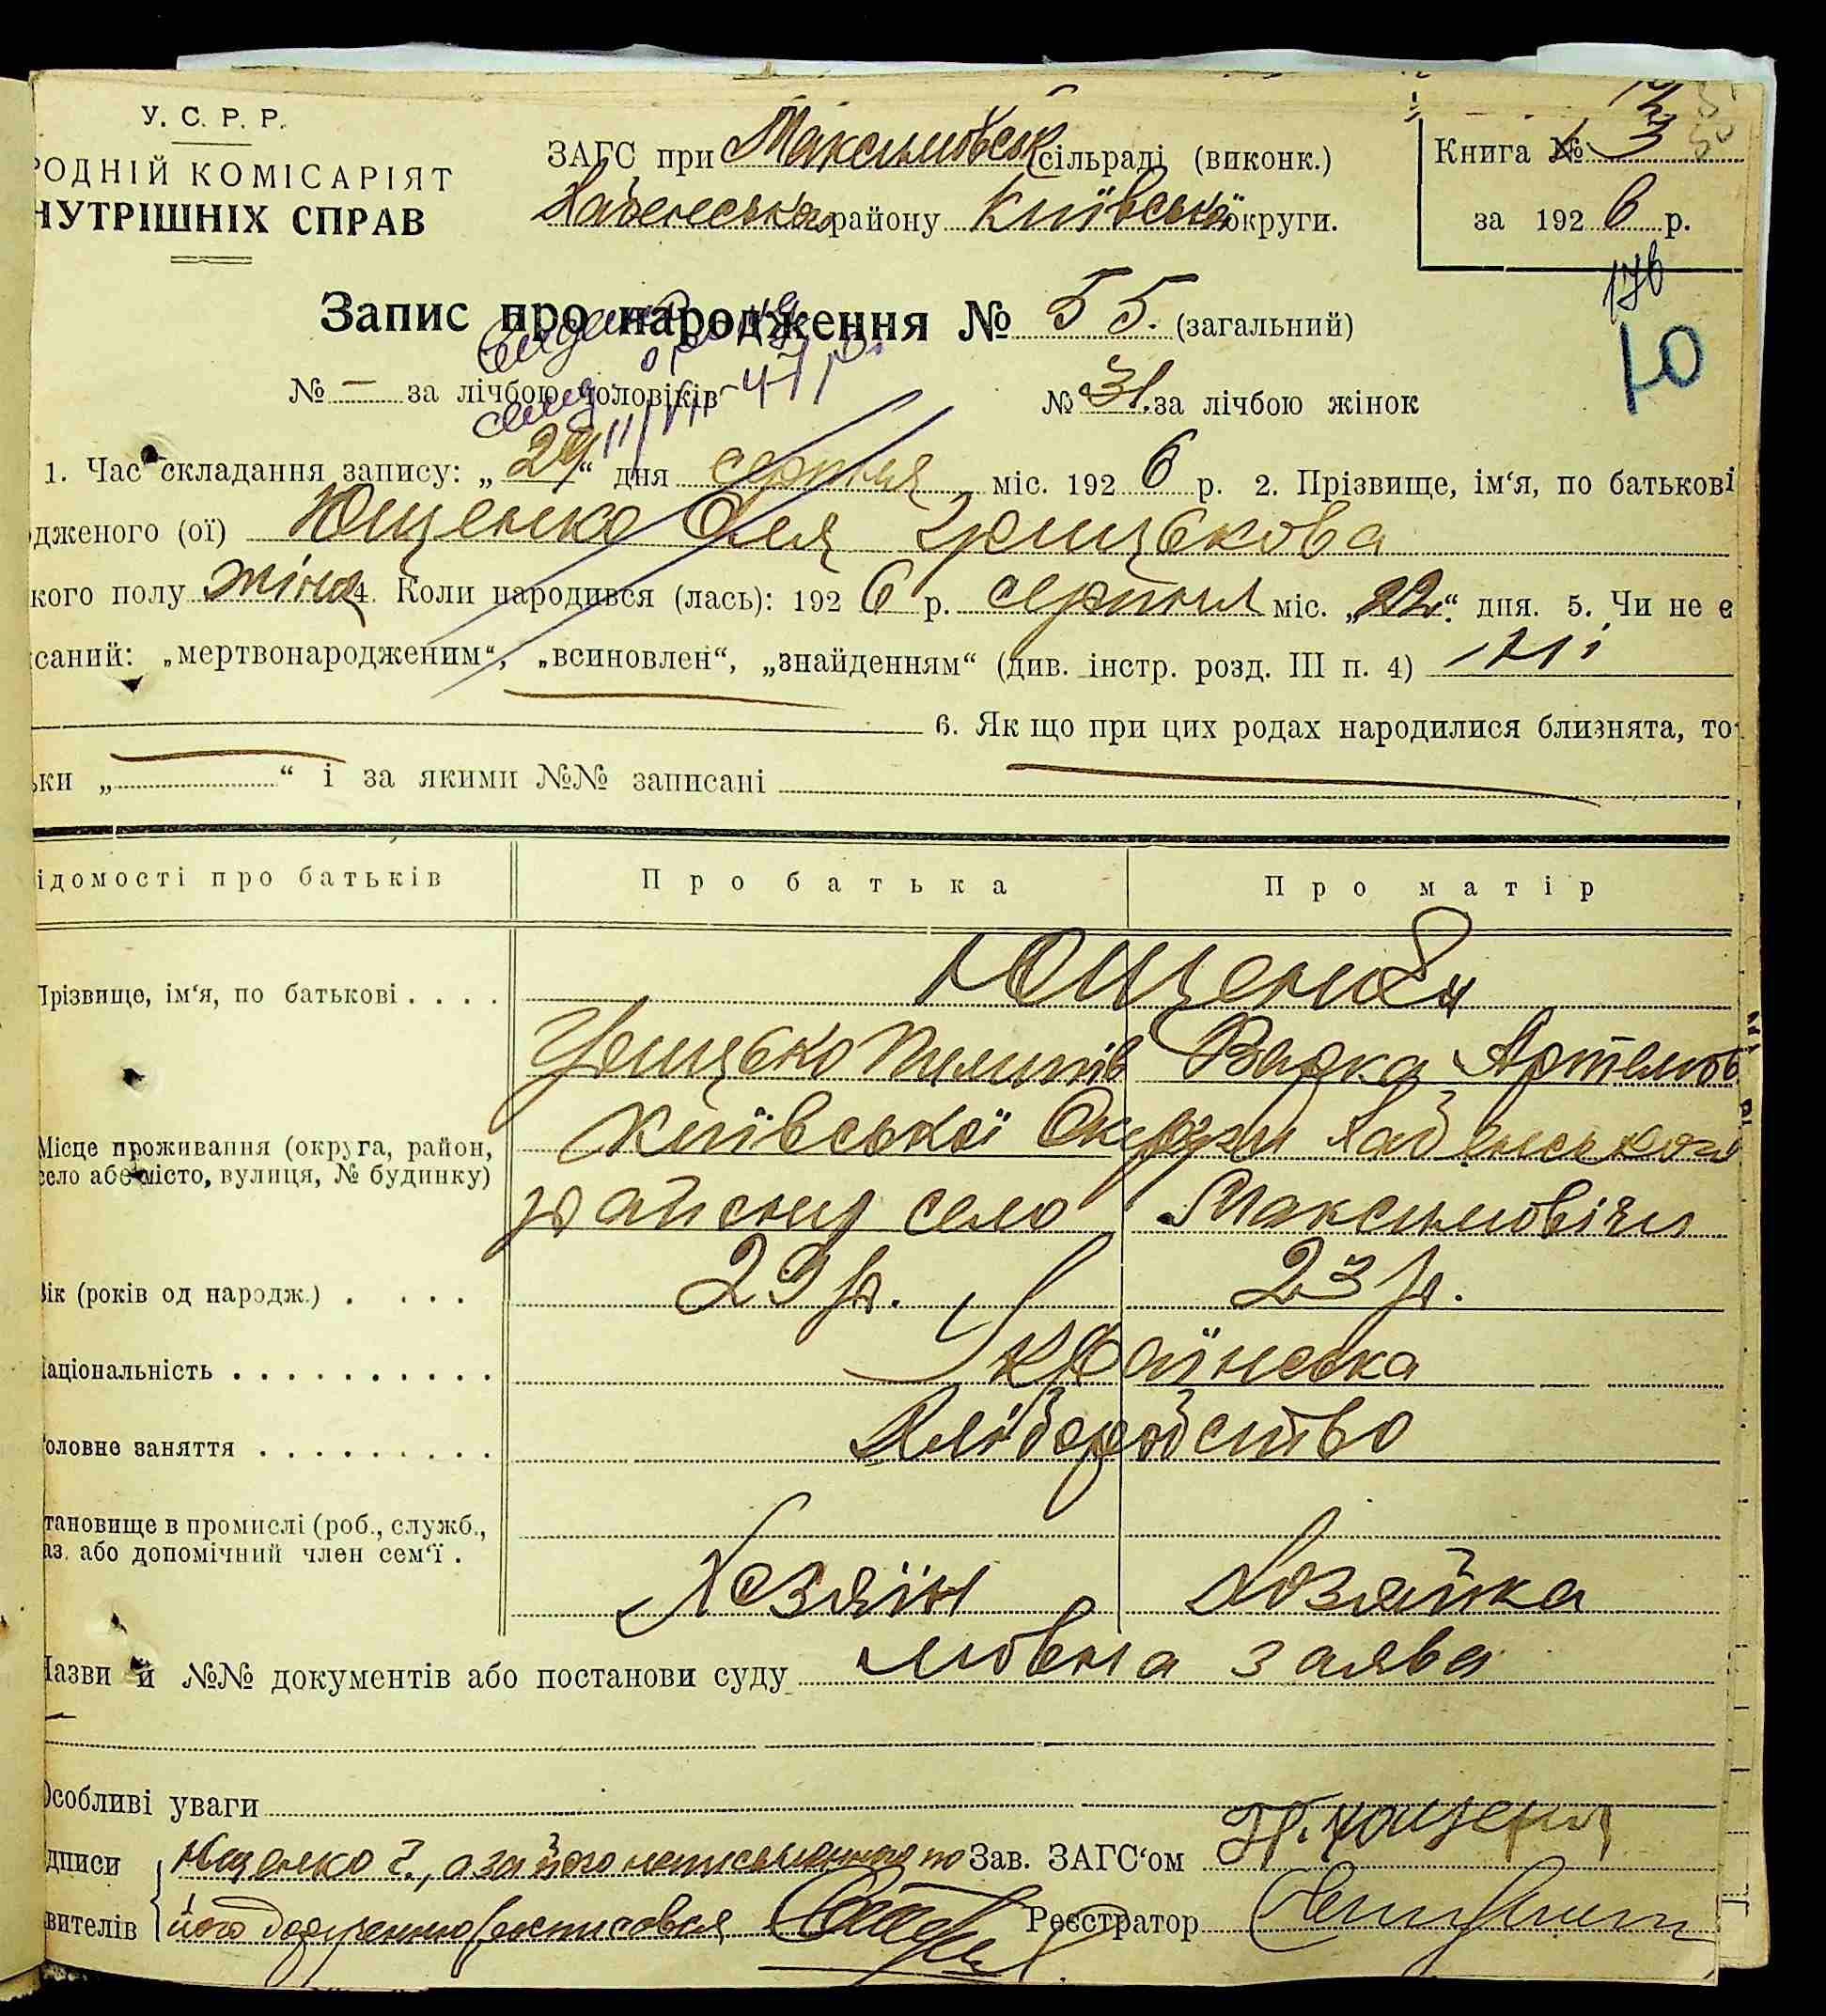 У. С. Р. Р.
РОДНІЙ КОМІСАРІЯТ
НУТРІШНІХ СПРАВ
ЗАГС при Максимовськ сільраді (виконк.)
Хабенського району Київської округи.
Книга № 3
за 1926 р.
176
Ю
Запис про народження № 55. (загальний)
№ — за лічбою чоловіків
№ 31. за лічбою жінок
1. Час складання запису: „29“ дня серпня міс. 1926 р. 2. Прізвище, ім‘я, по батькові
дженого (ої) Ющенко Оля Грицькова
кого полу жіноч 4. Коли народився (лась): 1926 р. серпня міс. „22“ дня. 5. Чи не є
саний: „мертвонародженим“, „всиновлен“, „знайденням“ (див. інстр. розд. III п. 4) ні
6. Як що при цих родах народилися близнята, то
ьки „ “ і за якими №№ записані
ідомості про батьків
Про батька
Про матір
Прізвище, ім‘я, по батькові . . . .
Ющенки
Грицько Пилипів Варка Артемов
Місце проживання (округа, район, село або місто, вулиця, № будинку)
Київської Округи Хабенського
району село Максимовічи
Вік (років од народж.) . . . . 29 р. 23 р.
Національність . . . . . . . . . . Українська
Головне заняття . . . . . . . . . Хліборобство
тановище в промислі (роб., служб.,
аз. або допомічний член сем‘ї .
Хозяїн Хозяйка
Назви й №№ документів або постанови суду мовна заява
Особливі уваги
дписи Ющенко Г., а за його неписьменного по Зав. ЗАГС‘ом Ющенко
явителів його дорученню росписовся Реєстратор